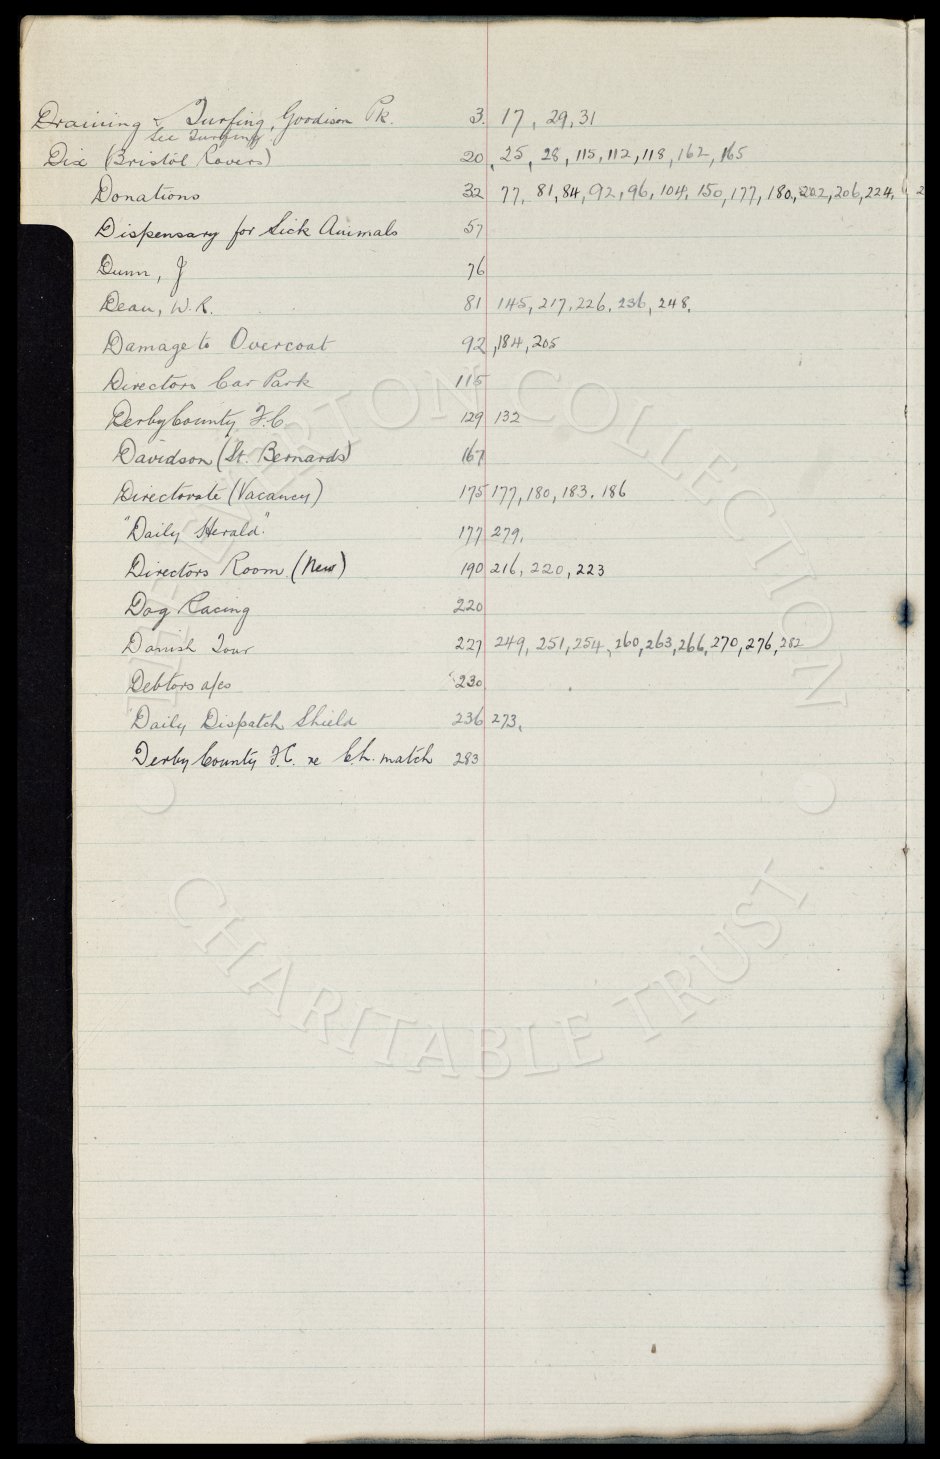 Draining & Turfing, Goodison Pk. 3. 17, 29, 31
See Turfing
Dix (Bristol Rovers) 20, 25, 28, 115, 112, 118, 162, 165
Donations 32 77, 81, 84, 92, 96, 104, 150, 177, 180, 202, 206, 224,
Dispensary for Sick Animals 57
Dunn, J 76
Dean, W.R. 81 145, 217, 226, 236, 248.
Damage to Overcoat 92, 184, 205
Directors Car Park 115
Derby County F.C. 129 132
Davidson (St. Bernards) 167
Directorate (Vacancy) 175 177, 180, 183. 186
"Daily Herald" 177 279.
Directors Room (New) 190 216, 220, 223
Dog Racing 220
Danish Tour 227 249, 251, 254, 260, 263, 266, 270, 276, 282
Debtors a/cs 230
Daily Dispatch Shield 236 273.
Derby County F.C. re C.L. match 283
THE EVERTON COLLECTION
CHARITABLE TRUST